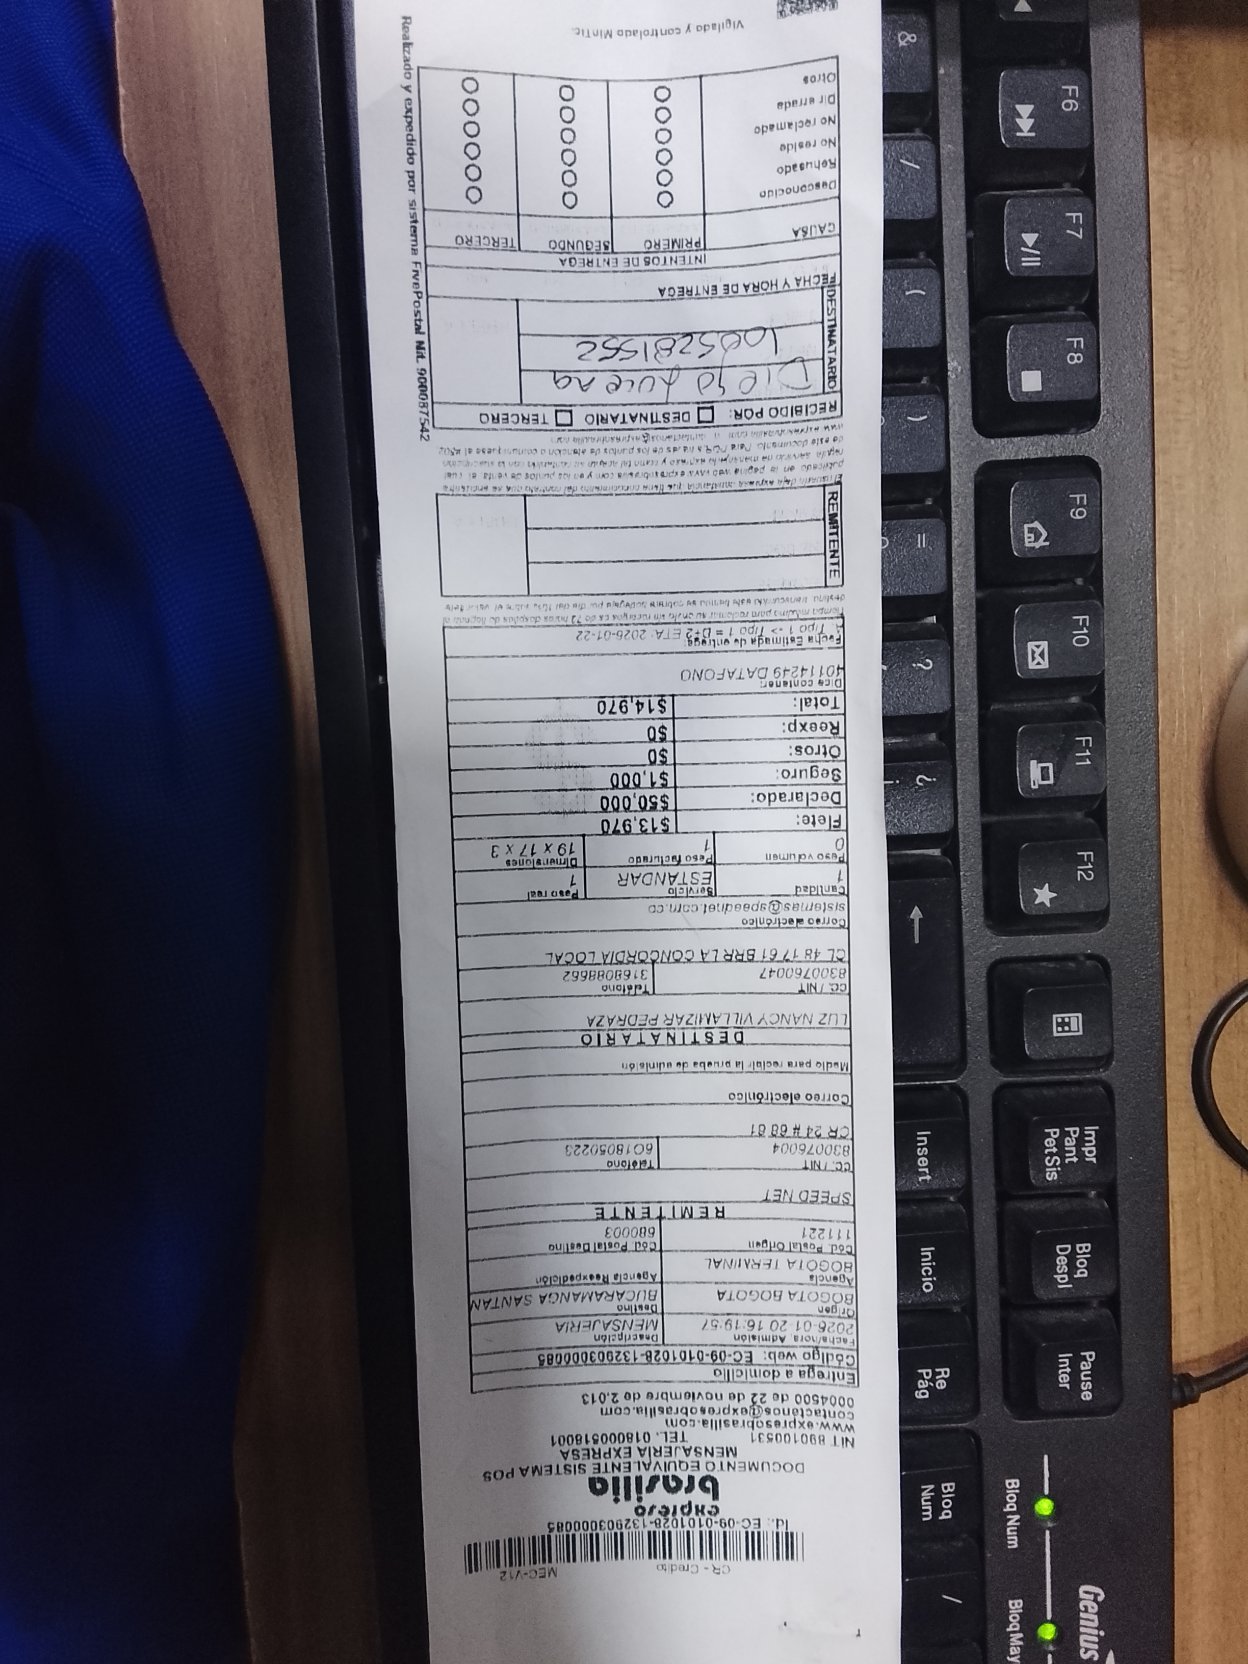 CR - Credito MEC-V12
Id.: EC-09-0101028-132903000085
expreso
brasilia
DOCUMENTO EQUIVALENTE SISTEMA POS
MENSAJERIA EXPRESA
NIT 890100531 TEL. 018000518001
www.expresobrasilia.com
contactanos@expresobrasilia.com
0004500 de 22 de noviembre de 2.013
Entrega a domicilio
Código web: EC-09-0101028-132903000085
Fecha/hora Admisión Descripción
2026-01-20 16:19:57 MENSAJERIA
Origen Destino
BOGOTA BOGOTA BUCARAMANGA SANTAN
Agencia Agencia Reexpedición
BOGOTA TERMINAL
Cód. Postal Origen Cód. Postal Destino
111221 680003
REMITENTE
SPEED NET
CC. / NIT Teléfono
830076004 6018050223
CR 24 # 68 81
Correo electrónico
Medio para recibir la prueba de admisión
DESTINATARIO
LUZ NANCY VILLAMIZAR PEDRAZA
CC. / NIT Teléfono
8300760047 3168088662
CL 48 17 61 BRR LA CONCORDIA LOCAL
Correo electrónico
sistemas@speednet.com.co
Cantidad Servicio Peso real
1 ESTANDAR 1
Peso volumen Peso facturado Dimensiones
0 1 19 x 17 x 3
Flete: $13,970
Declarado: $50,000
Seguro: $1,000
Otros: $0
Reexp: $0
Total: $14,970
Dice contener:
40114249 DATAFONO
Fecha Estimada de entrega:
A. Tipo 1 -> Tipo 1 = D+2 ETA: 2026-01-22
REMITENTE
RECIBIDO POR: DESTINATARIO TERCERO
DESTINATARIO
Diego Lucena
1005281552
FECHA Y HORA DE ENTREGA
INTENTOS DE ENTREGA
CAUSA PRIMERO SEGUNDO TERCERO
Desconocido
Rehusado
No reside
No reclamado
Dir errada
Otros
Vigilado y controlado MinTic.
Realizado y expedido por sistema FivePostal Nit. 900087542
F6
F7
F8
F9
F10
F11
F12
&
/
(
)
=
?
¿
¡
Insert
Inicio
Re
Pág
Bloq
Num
/
Impr
Pant
PetSis
Bloq
Despl
Pause
Inter
Bloq Num
Bloq May
Genius